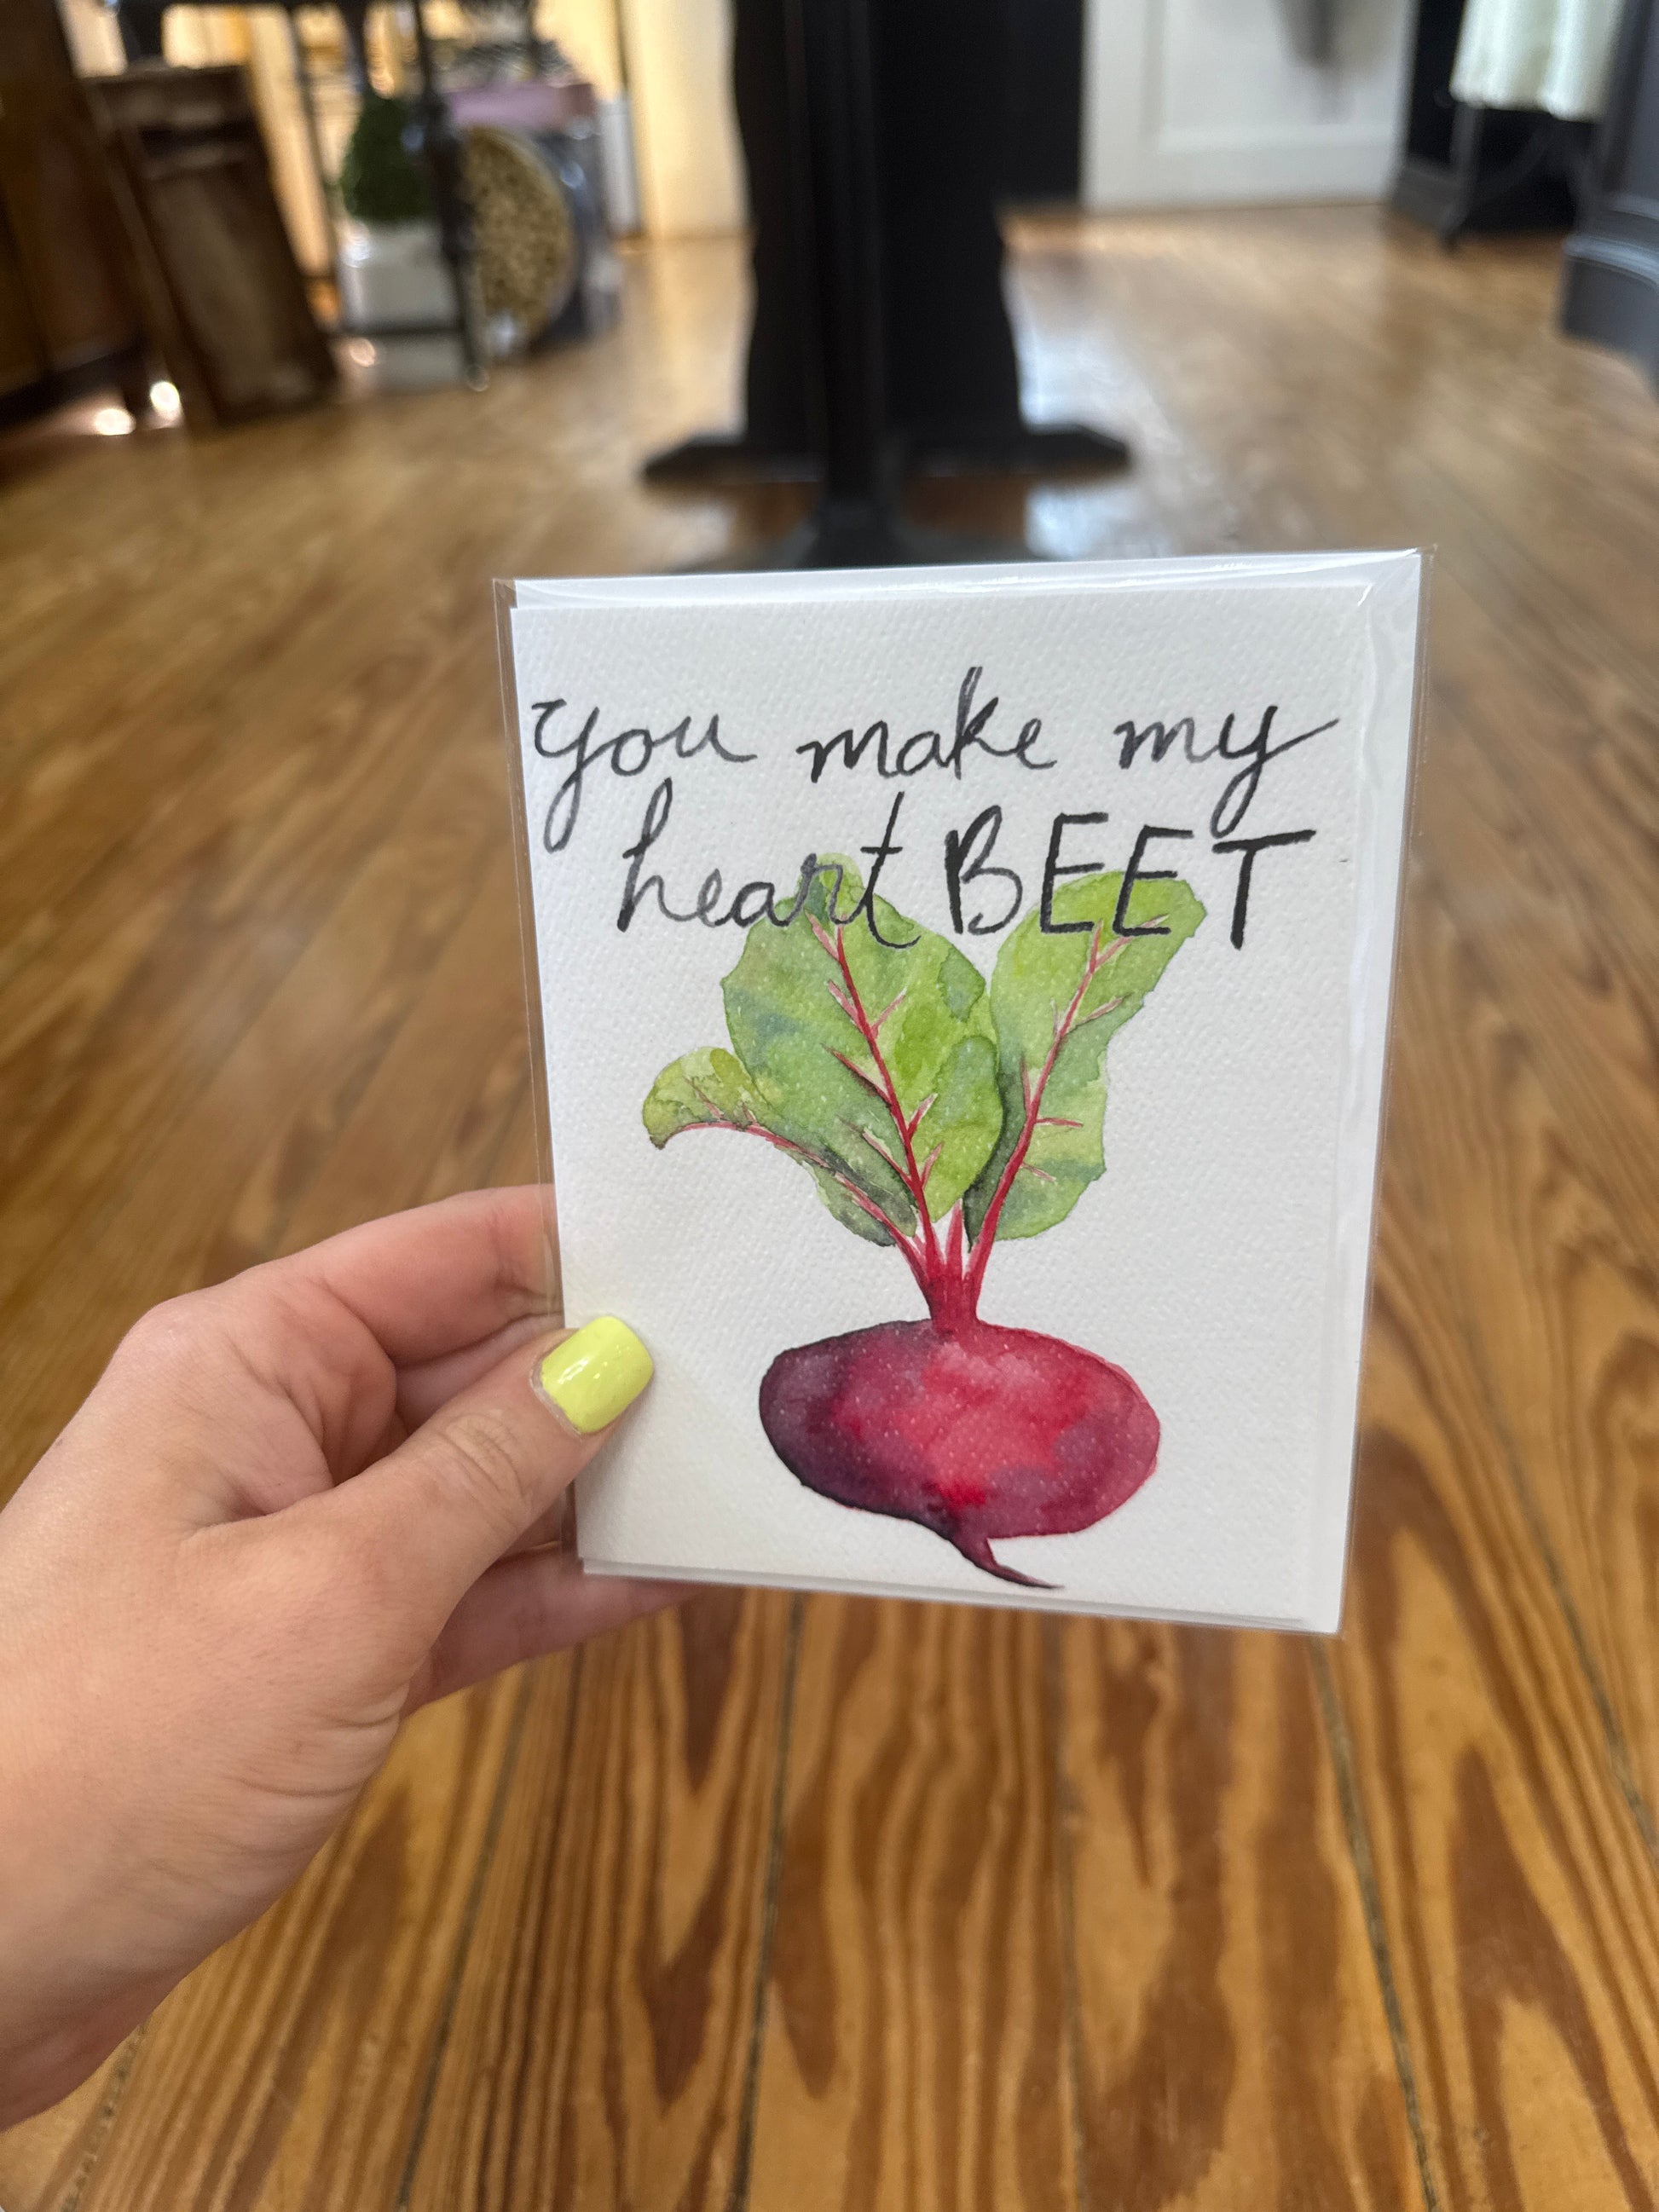 you make my
heart BEET